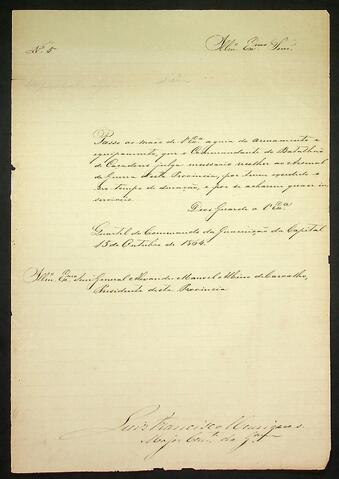 Nº 5
Illmº Exmo Senr
Passo as mãos de VExa a guia do armamento e
equipamento, que o Commandante do Batalhão
de Caçadores julga necessario recolher ao Arsenal
de Guerra desta Provincia, por terem excedido o
seu tempo de duração, e por se acharem quasi in-
serviveis
Deos Guarde a VExa
Quartel do Commando da Guarnição da Capital
15 de Outubro de 1864
Illmº Exmo Senr General Alexandre Manoel Albino de Carvalho,
Presidente desta Provincia
Luiz Francisco Henriques
Major